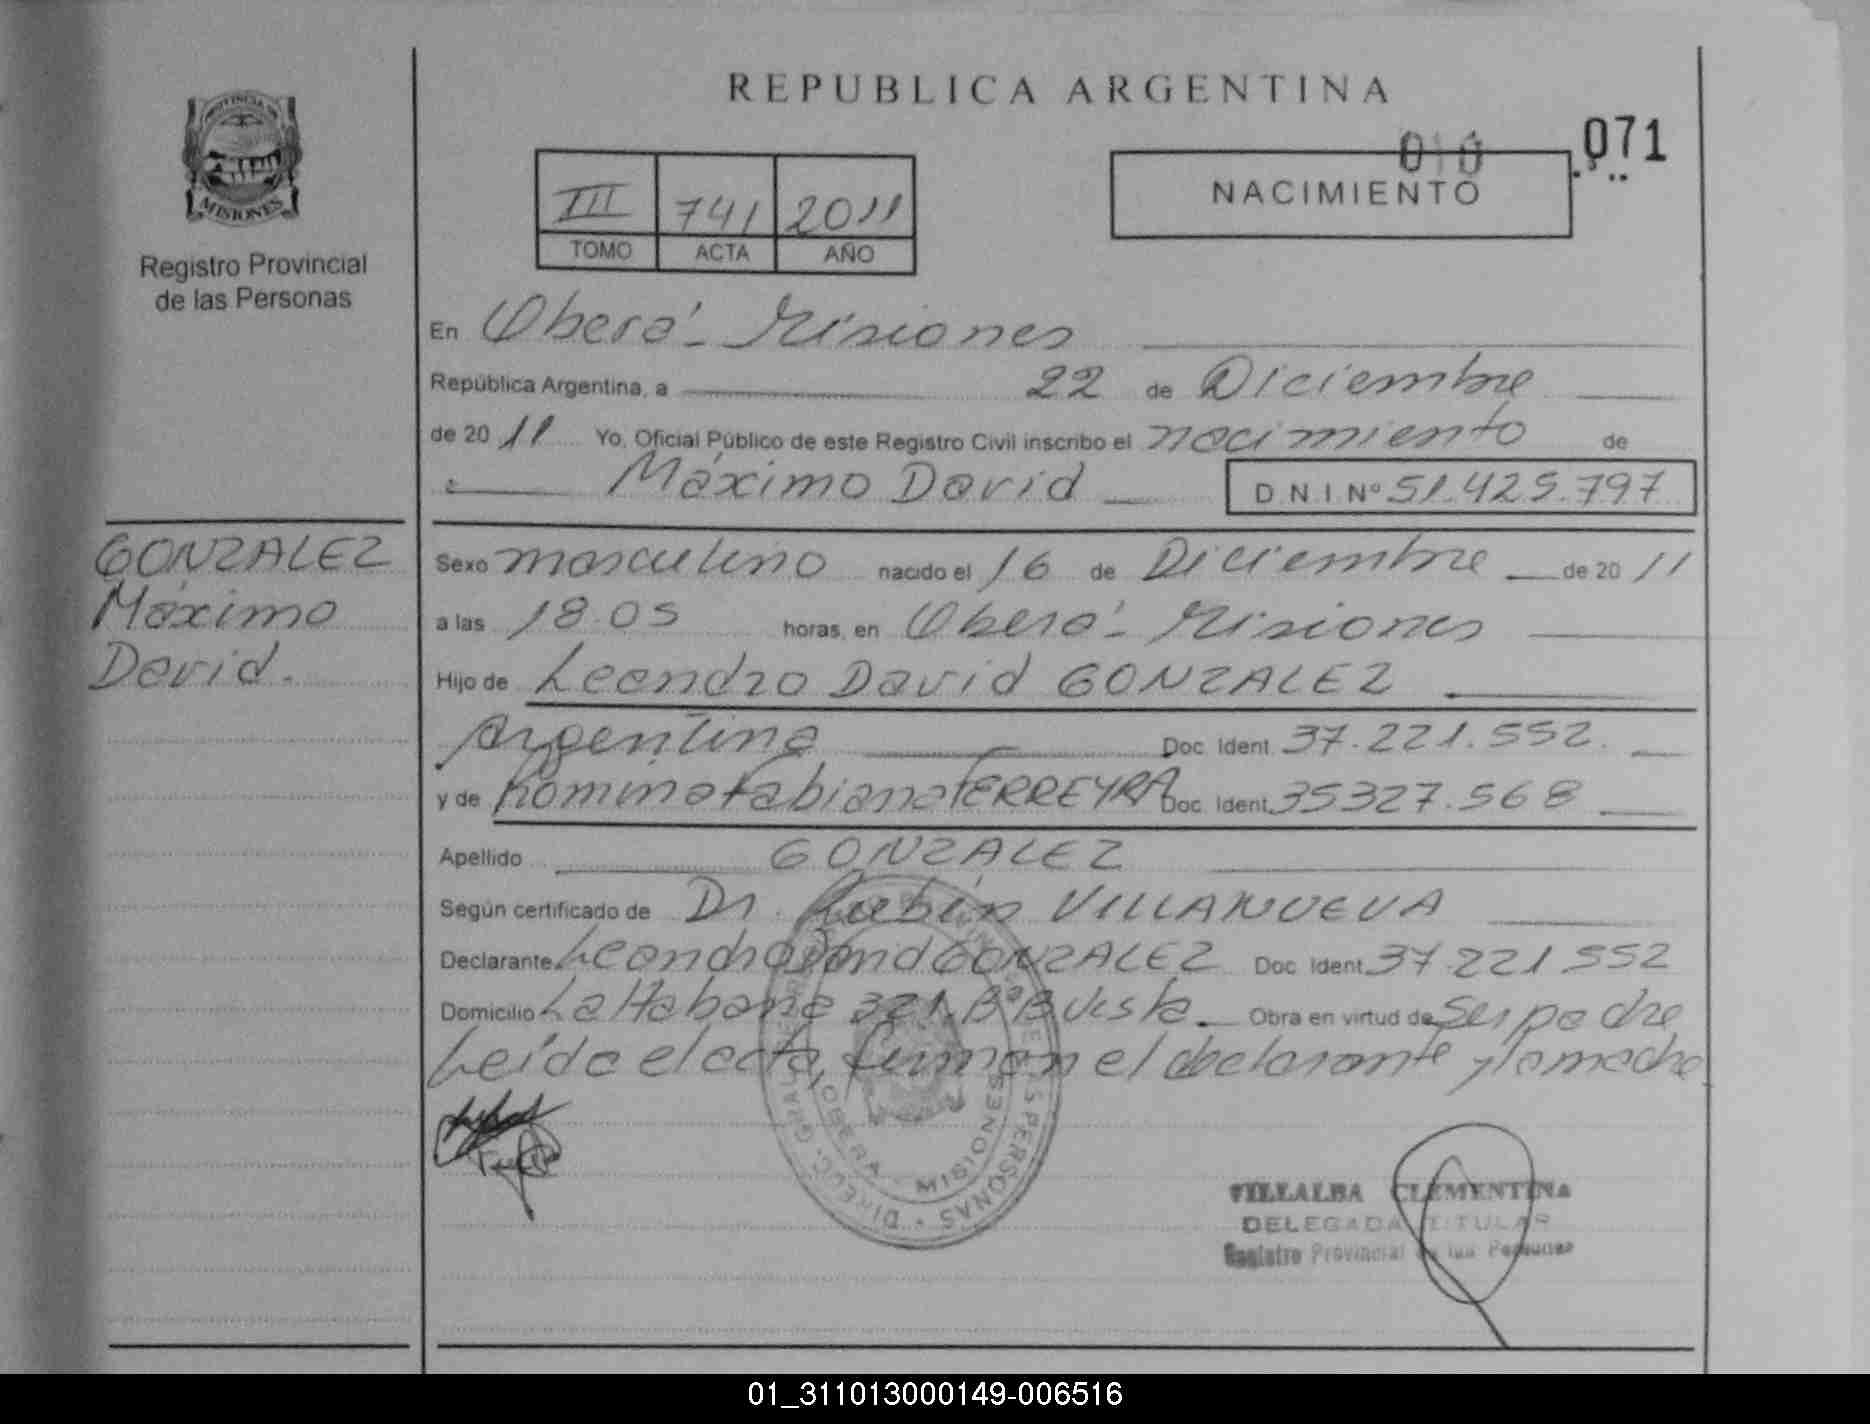 REPUBLICA ARGENTINA
071
010
PROVINCIA DE
MISIONES
Registro Provincial
de las Personas
III 741 2011
TOMO ACTA AÑO
NACIMIENTO
En Oberá - Misiones
República Argentina, a 22 de Diciembre
de 20 11 Yo, Oficial Público de este Registro Civil inscribo el nacimiento de
Máximo David D.N.I. Nº 51.425.797
GONZALEZ
Máximo
David.
Sexo masculino nacido el 16 de Diciembre de 20 11
a las 18.05 horas, en Oberá - Misiones
Hijo de Leandro David GONZALEZ
Argentina Doc. Ident. 37.221.552.
y de Rommina Fabiana FERREYRA Doc. Ident. 35327.568
Apellido GONZALEZ
Según certificado de Dr. Rubén VILLANUEVA
Declarante Leandro David GONZALEZ Doc. Ident. 37.221.552
Domicilio La Habana 321. Bº B Vista. Obra en virtud de Ser padre
Leída el acta, firman el declarante y la madre
OBERA - MISIONES
DE LAS PERSONAS
VILLALBA CLEMENTINA
DELEGADA TITULAR
Registro Provincial de las Personas
01_311013000149-006516